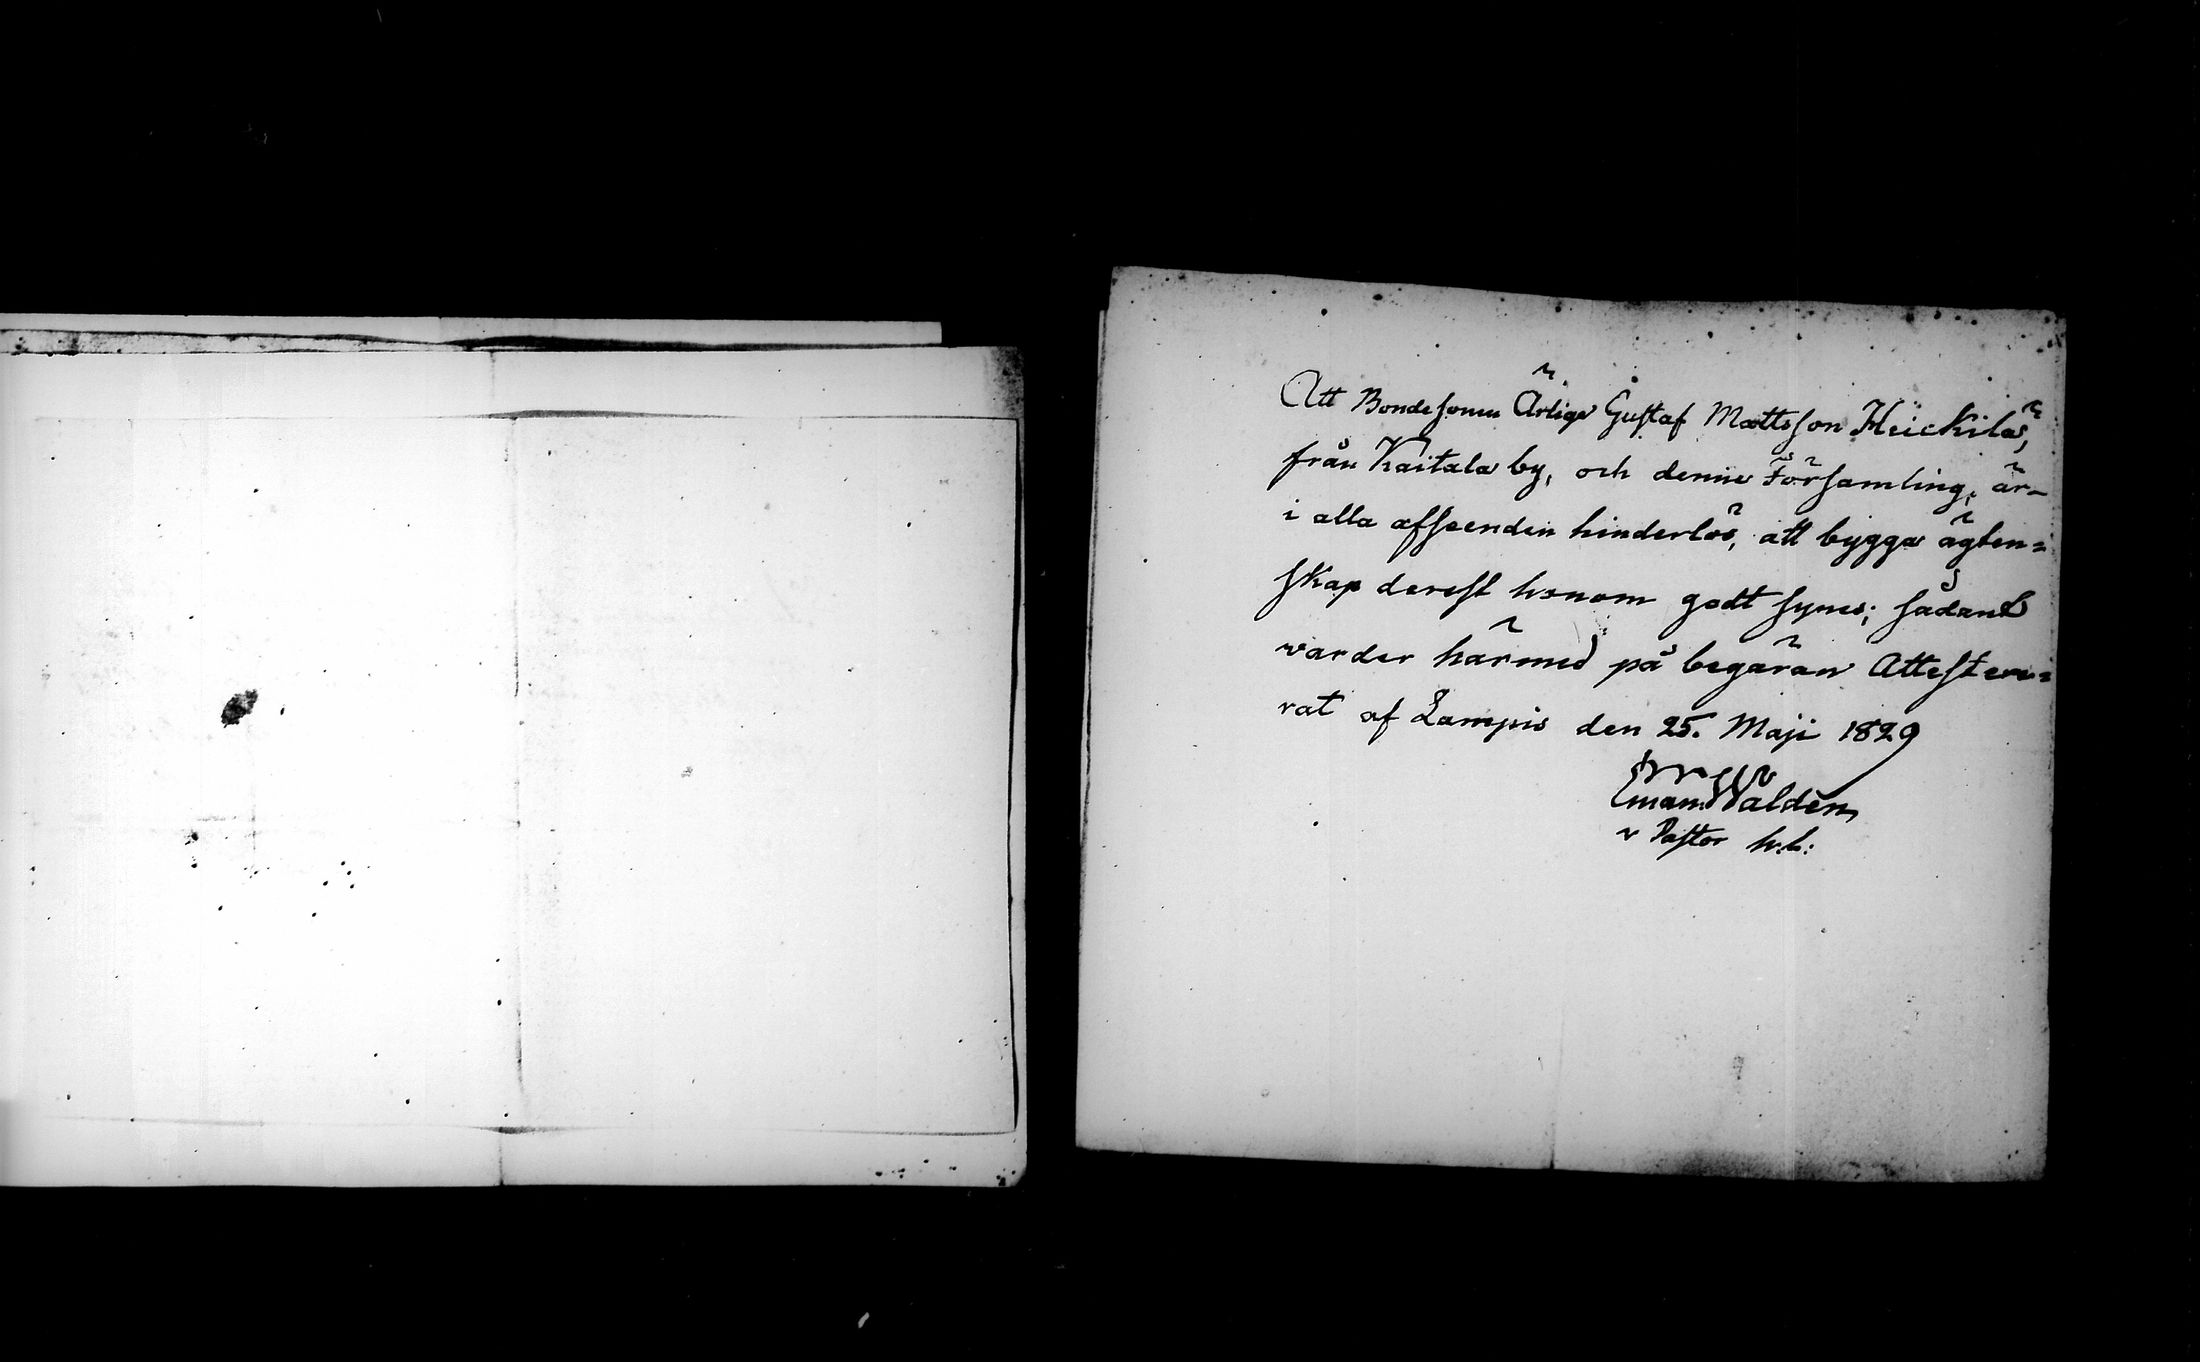 Att Bondesonen Ärlige Gustaf Mattsson Heickilä,
från Kaitala by, och denne Församling, är
i alla afseenden hinderlös, att bygga ägten=
skap derest honom godt synes; sådant
varder härmed på begäran Atteste=
rat af Lampis den 25. Maji 1829
Eman Waldén
v Pastor h.l: